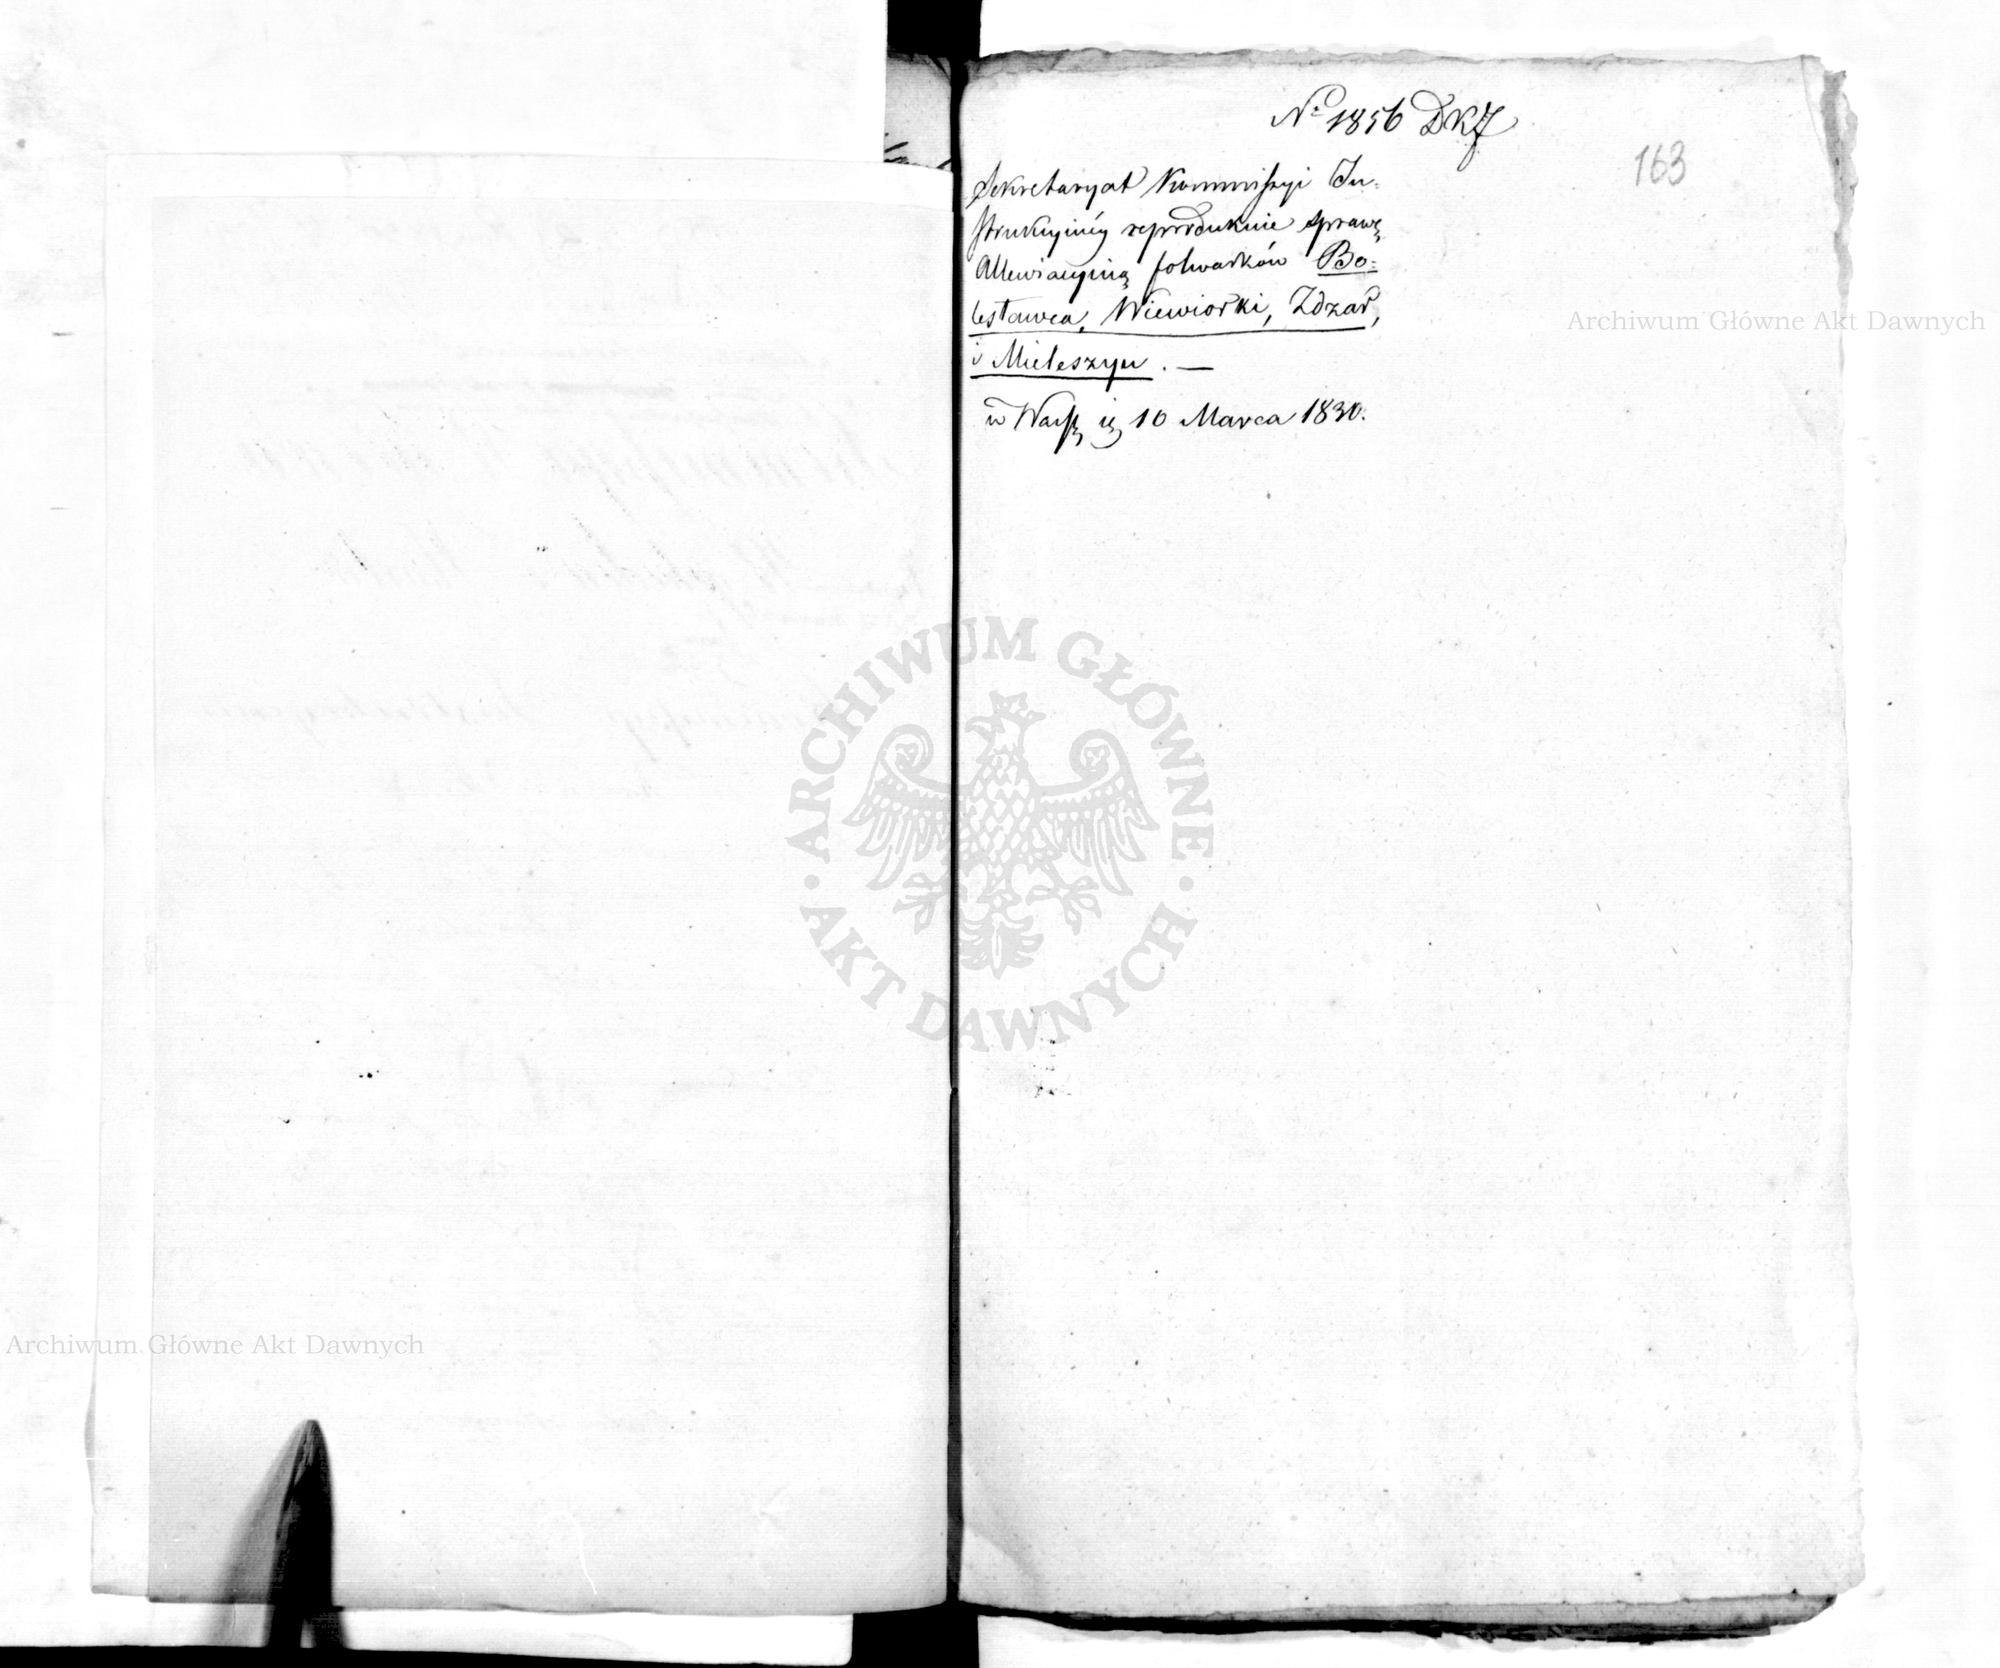 No 1856 DKJ
163
Sekretaryat Kommissyi In-
strukcyinéy reprodukuie sprawę
Allewiacyiną folwarków Bo-
lesławca, Wiewiorki, Zdzar,
i Mieleszyn. —
w Warsz. 10 Marca 1830.
Archiwum Główne Akt Dawnych
ARCHIWUM GŁÓWNE
AKT DAWNYCH
Archiwum Główne Akt Dawnych